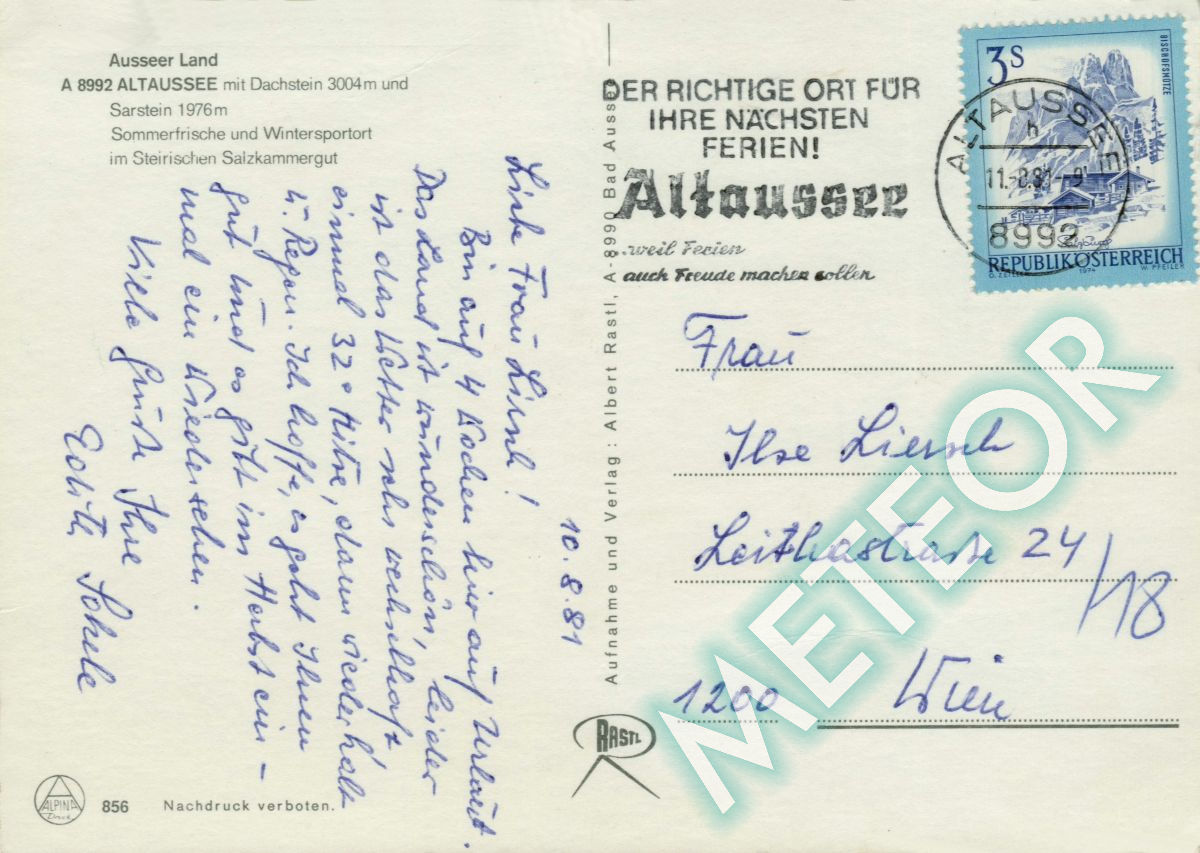 Ausseer Land
A 8992 ALTAUSSEE mit Dachstein 3004m und
Sarstein 1976m
Sommerfrische und Wintersportort
im Steirischen Salzkammergut
10.8.81
Liebe Frau
Bin auf 4 Wochen hier auf Urlaub.
Das Land ist wunderschön, leider
ist das Wetter sehr wechselhaft,
einmal 32° Hitze, dann wieder kalt
u. Regen. Ich hoffe, es geht Ihnen
gut und es gibt im Herbst ein-
mal ein Wiedersehen.
Viele Grüße Ihre
Edith
ALPINA
Druck
856
Nachdruck verboten.
Aufnahme und Verlag: Albert Rastl, A-8990 Bad Aussee
RASTL
DER RICHTIGE ORT FÜR
IHRE NÄCHSTEN
FERIEN!
Altaussee
...weil Ferien
auch Freude machen sollen
ALTAUSSEE
h
11.-8.81-9
8992
3S
BISCHOFSMÜTZE
Salzburg
REPUBLIK ÖSTERREICH
O. ZEILLER 1974 W. PFEILER
Frau
Ilse Liersch
Leithastraße 24/18
1200 Wien
METEOR